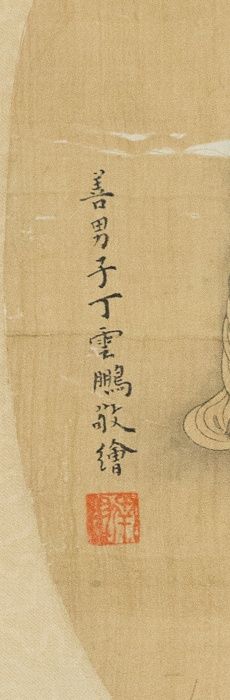 善男子丁雲鵬敬繪
南羽